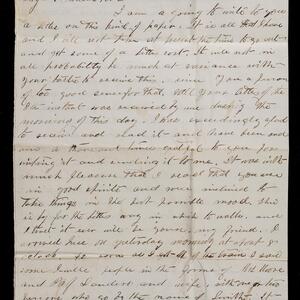 I am a going to write to you
a letter on this kind of paper. It is all that I have
and I will not take at present the time to go out
and get some of a better cost. It will not in
all probability be much at variance with
your tastes to receive this, since you a person
of too good sense for that. Well your letter of the
instant was received by me during the
morning of this day. I was exceedingly glad
to receive and read it and have been and
am a thousand times obliged to you for
writing it and sending it to me. It was with
much pleasure that I read that you were
in good spirits and were inclined to
take things in the best possible mood. This
is by far the better way in which to
and
trust it ever will be yours my friend. I
arrived here on yesterday morning at about
o'clock. As soon as I got off of the train I saw
some people in the forms of Old
and Sanders and wife, with one or two
persons who go by the name of Smith. It